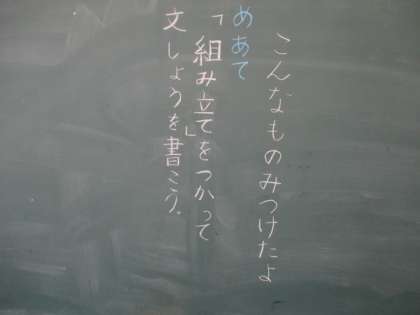 こんなものみつけたよ
めあて
「組み立て」をつかって
文しょうを書こう。